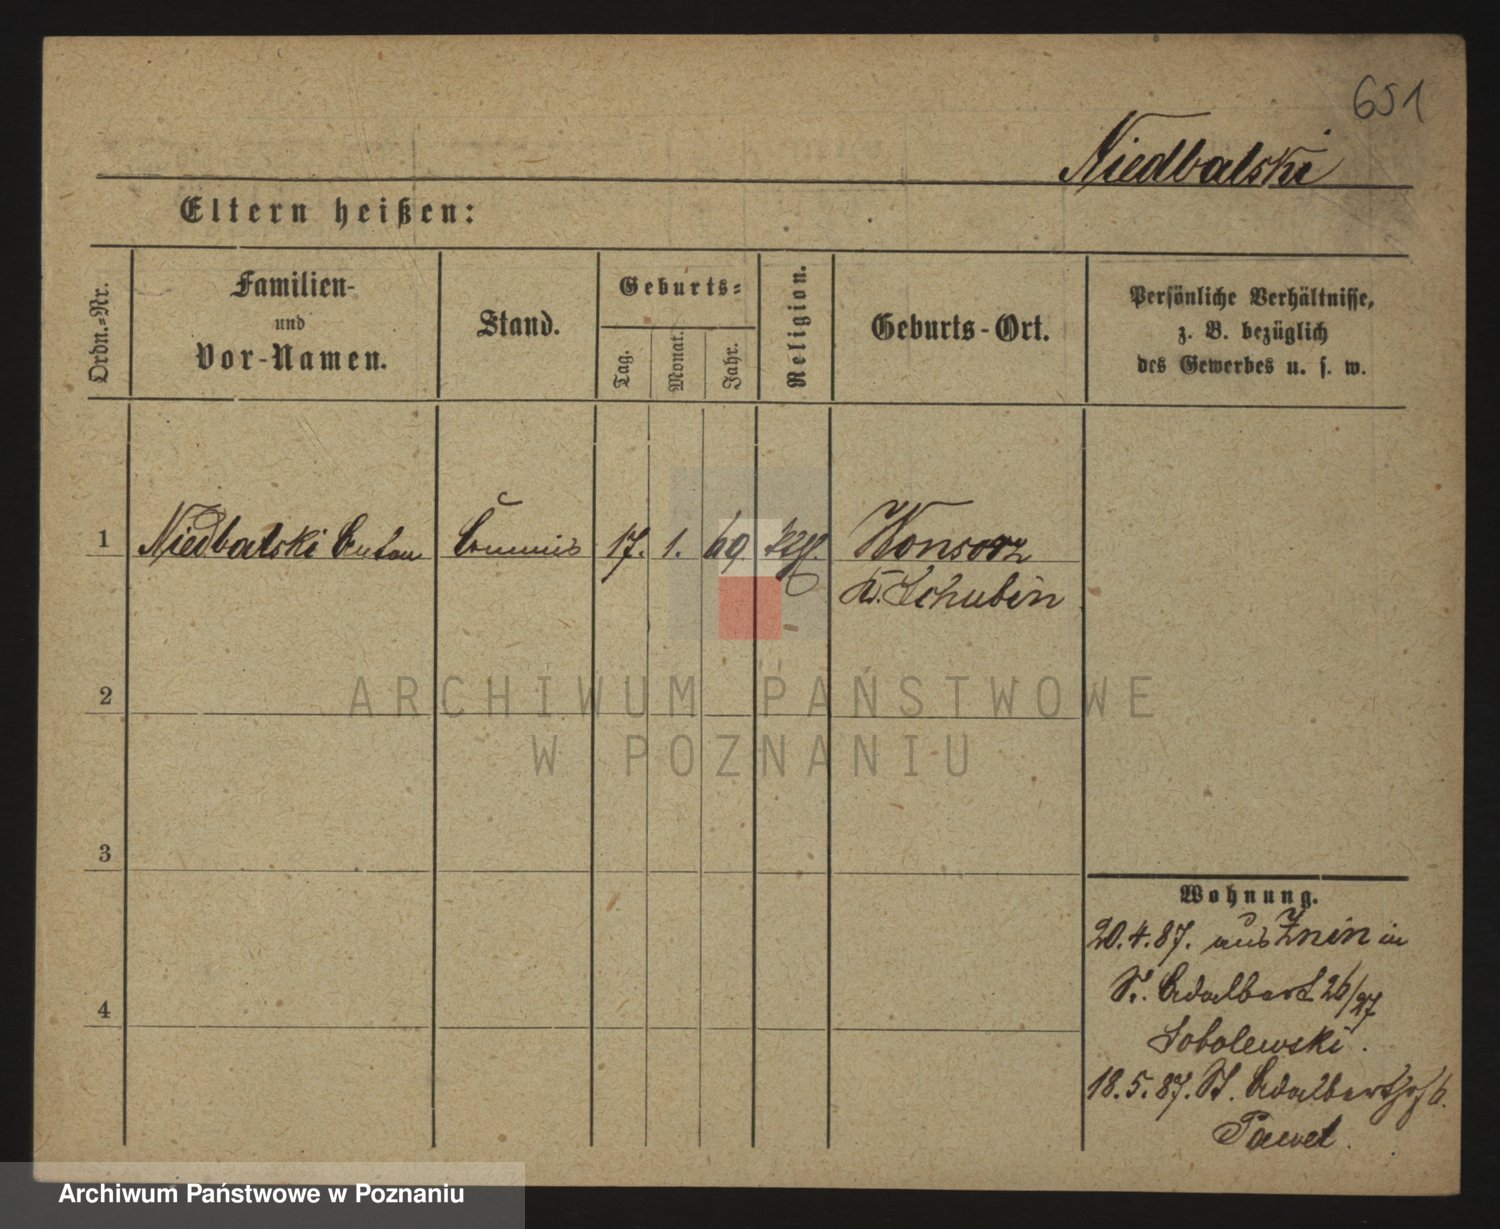 651
Niedbalski
Eltern heißen:
Ordn.-Nr.
Familien-
und
Vor-Namen.
Stand.
Geburts-
Tag.
Monat.
Jahr.
Religion.
Geburts-Ort.
Persönliche Verhältnisse,
z. B. bezüglich
des Gewerbes u. s. w.
1 Niedbalski Anton Commis 17. 1. 69. Konsorz
Kr. Schubin
2
3
4
Wohnung.
20.4.87. aus Znin in
St. Adalbert 26/27
Sobolewski.
18.5.87. St. Adalbert
Pawel.
ARCHIWUM PAŃSTWOWE
W POZNANIU
Archiwum Państwowe w Poznaniu